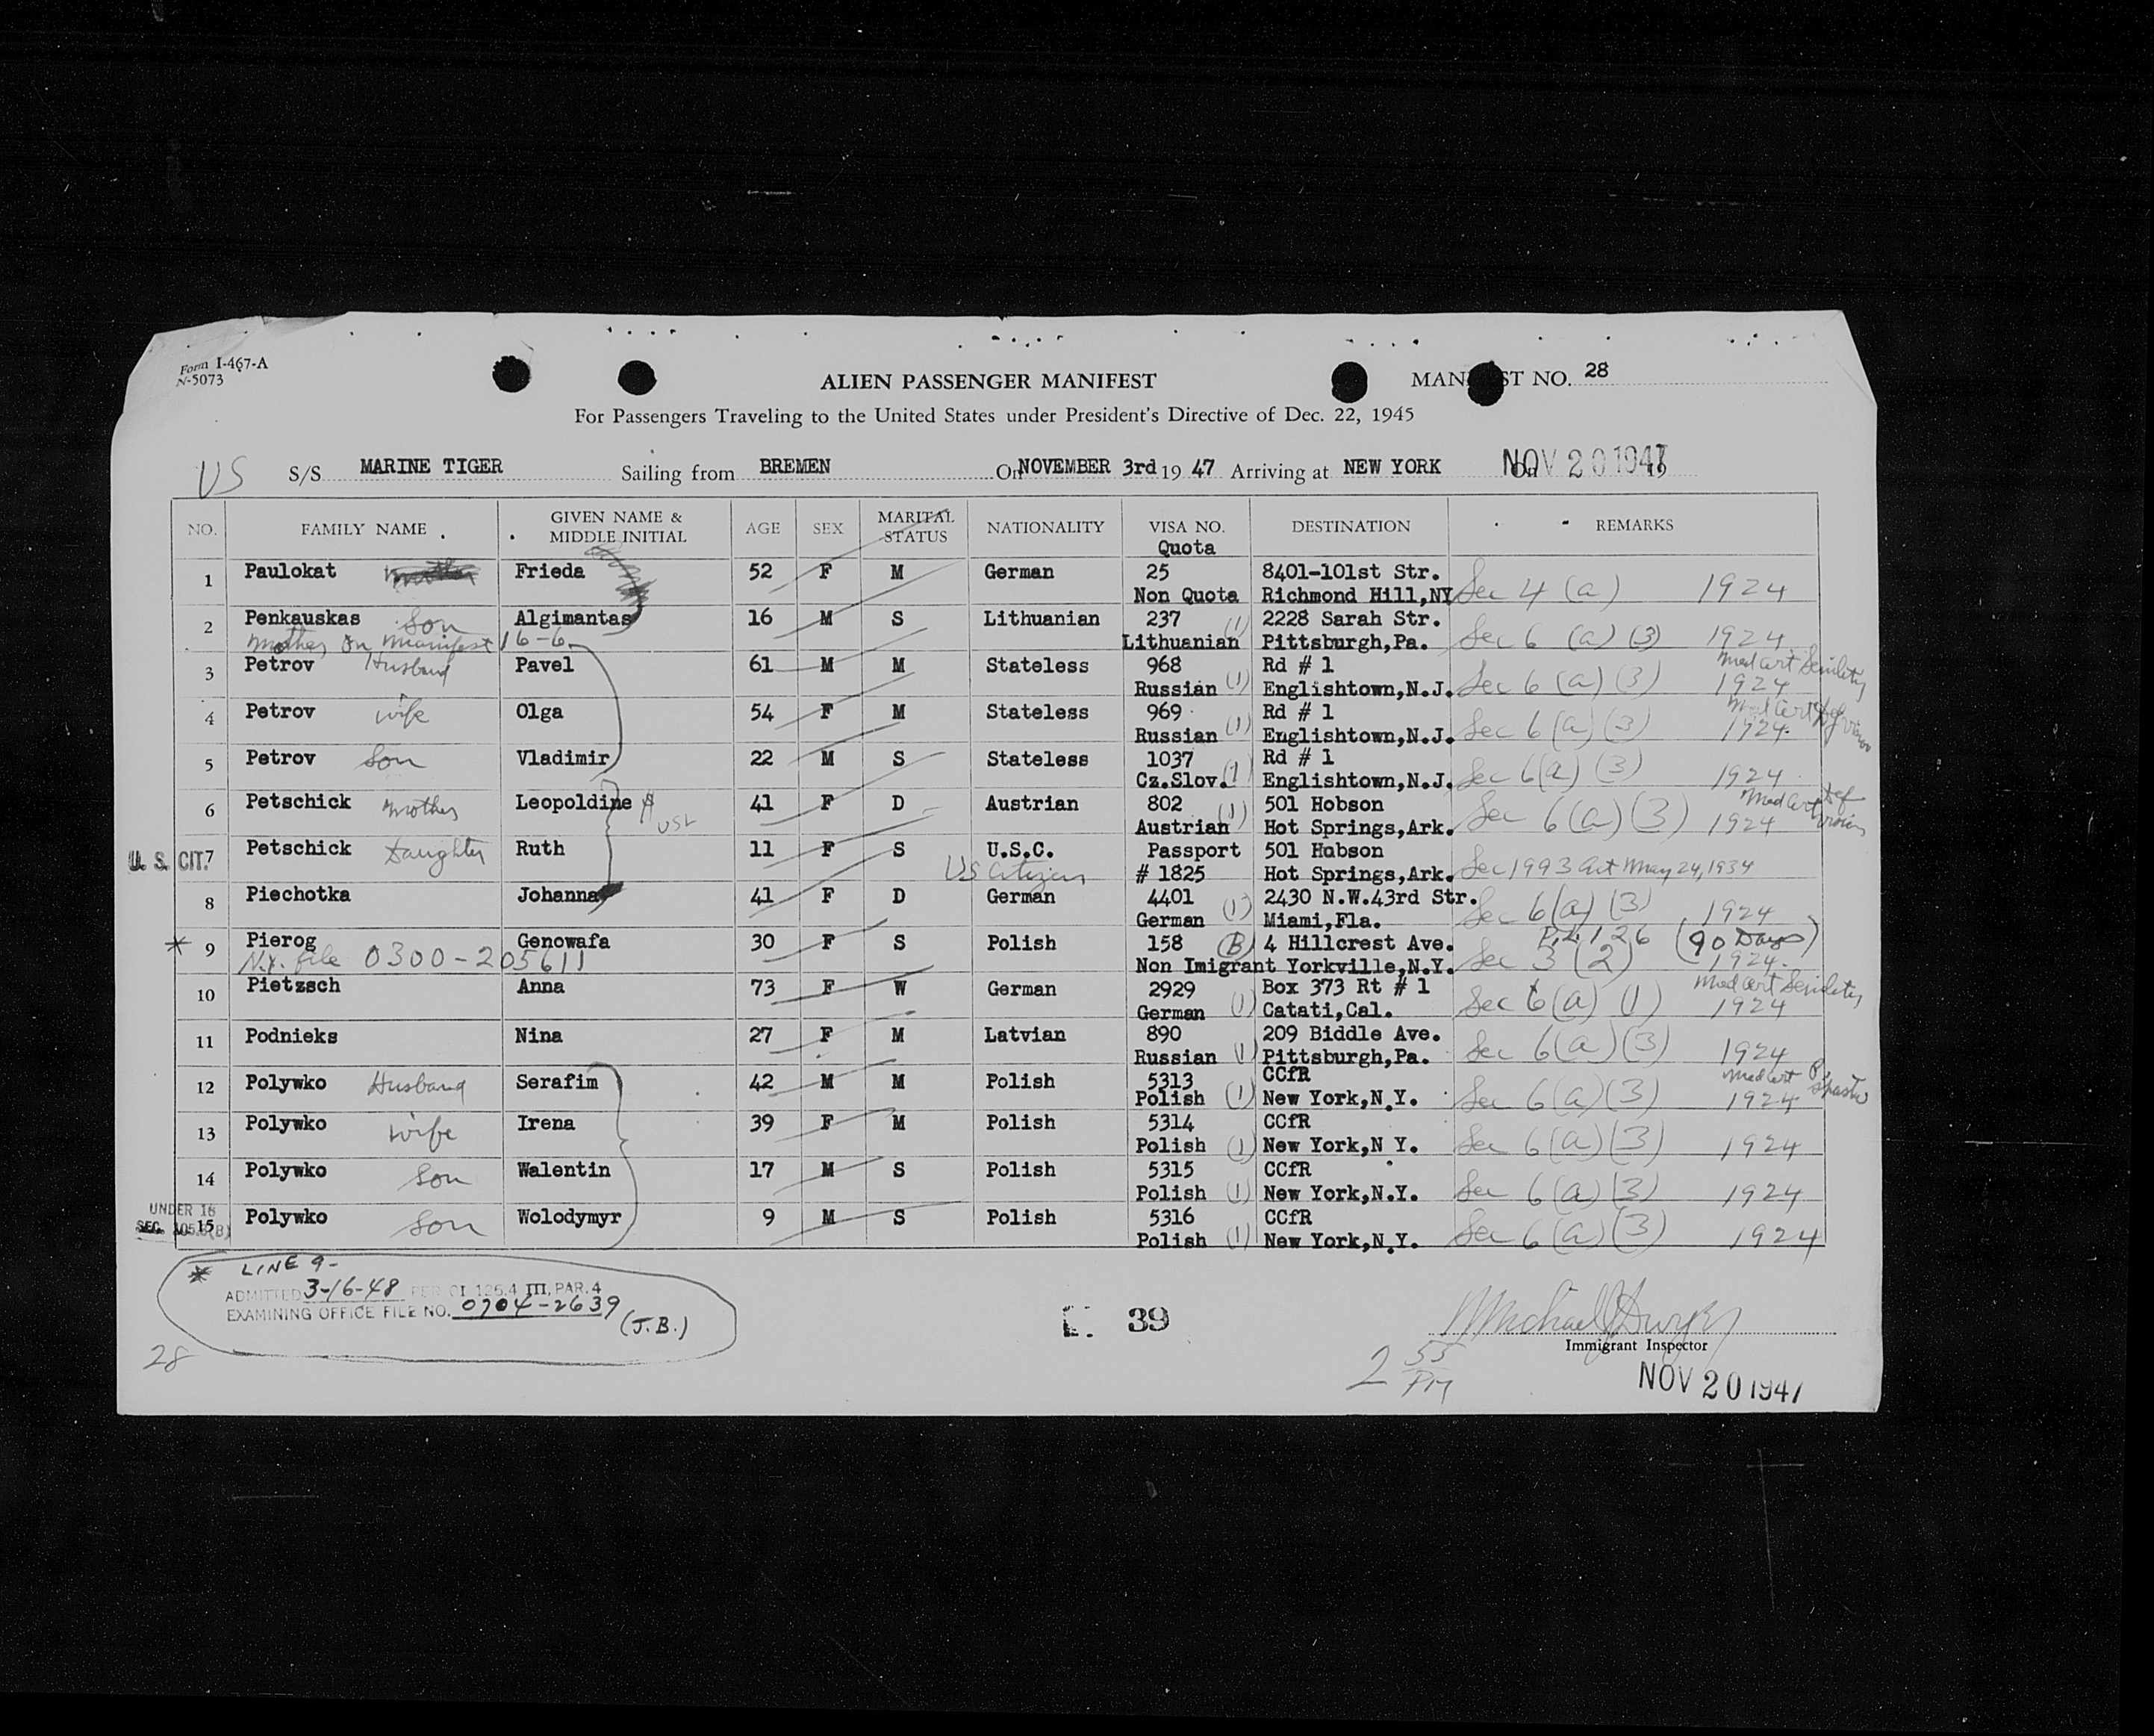 Form I-467-A
N-5073
ALIEN PASSENGER MANIFEST
MAN ST NO. 28
For Passengers Traveling to the United States under President's Directive of Dec. 22, 1945
US S/S MARINE TIGER Sailing from BREMEN On NOVEMBER 3rd 19 47 Arriving at NEW YORK On NOV 20 1947 19
NO. FAMILY NAME GIVEN NAME & MIDDLE INITIAL AGE SEX MARITAL STATUS NATIONALITY VISA NO. DESTINATION REMARKS
Quota
1 Paulokat Frieda 52 F M German 25 8401-101st Str.
Non Quota Richmond Hill,NY Sec 4 (a) 1924
2 Penkauskas Son Algimantas 16 M S Lithuanian 237 (1) 2228 Sarah Str.
Mother on Manifest 16-6 Lithuanian Pittsburgh,Pa. Sec 6 (a) (3) 1924
3 Petrov Husband Pavel 61 M M Stateless 968 Rd # 1 Med Cert Senility
Russian (1) Englishtown,N.J. Sec 6 (a) (3) 1924
4 Petrov wife Olga 54 F M Stateless 969 Rd # 1 Med Cert Def vision
Russian (1) Englishtown,N.J. Sec 6 (a) (3) 1924
5 Petrov Son Vladimir 22 M S Stateless 1037 Rd # 1
Cz.Slov. (1) Englishtown,N.J. Sec 6(a) (3) 1924
6 Petschick Mother Leopoldine 41 F D Austrian 802 (1) 501 Hobson Med Cert Def vision
Austrian Hot Springs,Ark. Sec 6(a)(3) 1924
U. S. CIT. 7 Petschick Daughter Ruth 11 F S U.S.C. Passport 501 Habson
US Citizen # 1825 Hot Springs,Ark. Sec 1993 Act May 24, 1934
8 Piechotka Johanna 41 F D German 4401 2430 N.W.43rd Str.
German (1) Miami,Fla. Sec 6(a) (3) 1924
* 9 Pierog Genowafa 30 F S Polish 158 (B) 4 Hillcrest Ave. P.L. 126 (90 Days)
N.Y. file 0300-205611 Non Imigrant Yorkville,N.Y. Sec 3 (2) 1924
10 Pietzsch Anna 73 F W German 2929 Box 373 Rt # 1 Med Cert Senility
German (1) Catati,Cal. Sec 6(a) (1) 1924
11 Podnieks Nina 27 F M Latvian 890 209 Biddle Ave.
Russian (1) Pittsburgh,Pa. Sec 6(a)(3) 1924
12 Polywko Husband Serafim 42 M M Polish 5313 CCfR Med Cert
Polish (1) New York,N.Y. Sec 6(a)(3) 1924
13 Polywko wife Irena 39 F M Polish 5314 CCfR
Polish (1) New York,N Y. Sec 6(a)(3) 1924
14 Polywko Son Walentin 17 M S Polish 5315 CCfR
Polish (1) New York,N.Y. Sec 6(a)(3) 1924
UNDER 16
15 Polywko Son Wolodymyr 9 M S Polish 5316 CCfR
Polish (1) New York,N.Y. Sec 6(a)(3) 1924
* LINE 9-
ADMITTED 3-16-48 PER OI 125.4 III, PAR. 4
EXAMINING OFFICE FILE NO. 0704-2639
(J.B.)
39
Michael J Dwyer
Immigrant Inspector
28
2 55 PM
NOV 20 1947